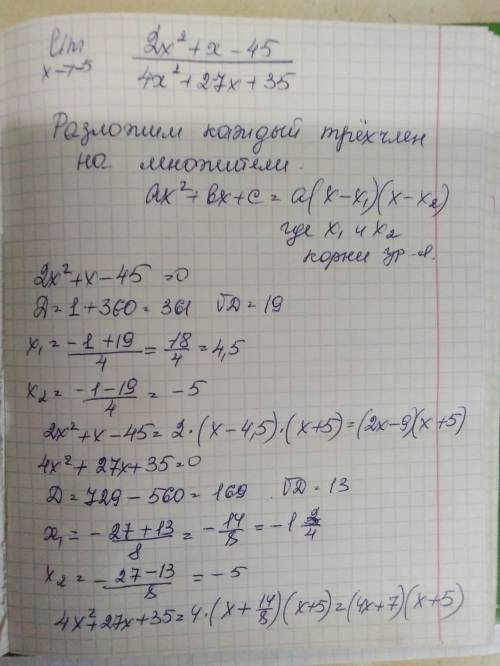 lim 2x² + x - 45
x→-5 4x² + 27x + 35
Разложим каждый трёхчлен
на множители.
ax² + bx + c = a(x - x₁)(x - x₂)
где x₁ и x₂
корни ур-я.
2x² + x - 45 = 0
D = 1 + 360 = 361 √D = 19
x₁ = -1 + 19/4 = 18/4 = 4,5
x₂ = -1 - 19/4 = -5
2x² + x - 45 = 2·(x - 4,5)·(x + 5) = (2x - 9)(x + 5)
4x² + 27x + 35 = 0
D = 729 - 560 = 169 √D = 13
x₁ = -27 + 13/8 = -14/8 = -1
x₂ = -27 - 13/8 = -5
4x² + 27x + 35 = 4·(x + 14/8)(x + 5) = (4x + 7)(x + 5)